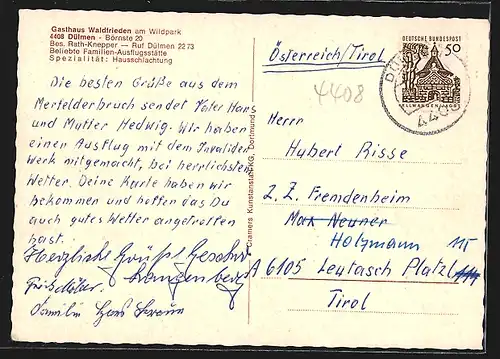 Gasthaus Waldfrieden am Wildpark
4408 Dülmen - Börnste 20
Bes. Rath-Knepper — Ruf Dülmen 2273
Beliebte Familien-Ausflugsstätte
Spezialität: Hausschlachtung
Die besten Grüße aus dem
Merfelderbruch sendet Vater Hans
und Mutter Hedwig. Wir haben
einen Ausflug mit dem Invaliden
Werk mitgemacht, bei herrlichstem
Wetter. Deine Karte haben wir
bekommen und hoffen das Du
auch gutes Wetter angetroffen
hast.
Herzliche Grüße
Familie Hans
Cramers Kunstanstalt KG, Dortmund
Österreich/Tirol
4408
DEUTSCHE BUNDESPOST
50
ELLWANGEN/JAGST
Herrn
Hubert Risse
z. Z. Fremdenheim
Max Neuner
Holzmann
A 6105 Leutasch Platzl
Tirol